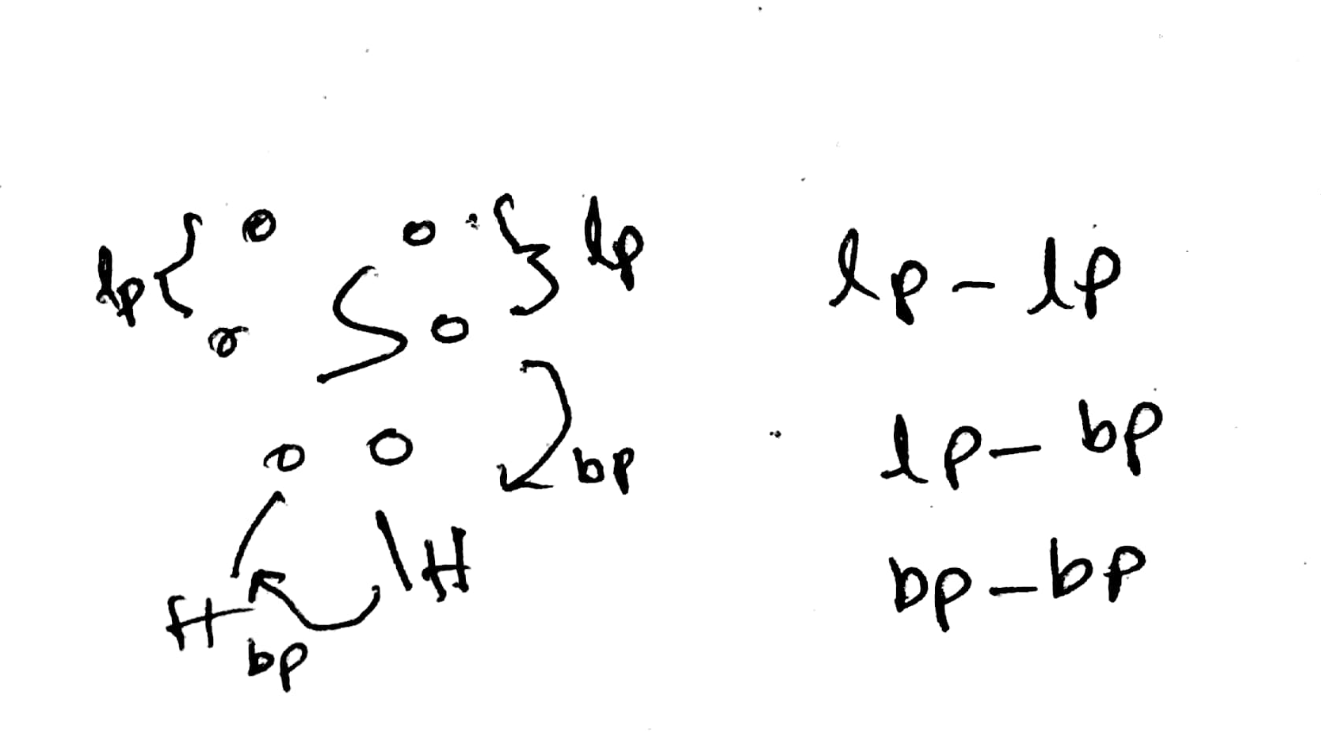 lp lp
lp - lp
S
bp
lp - bp
H H
bp
bp - bp